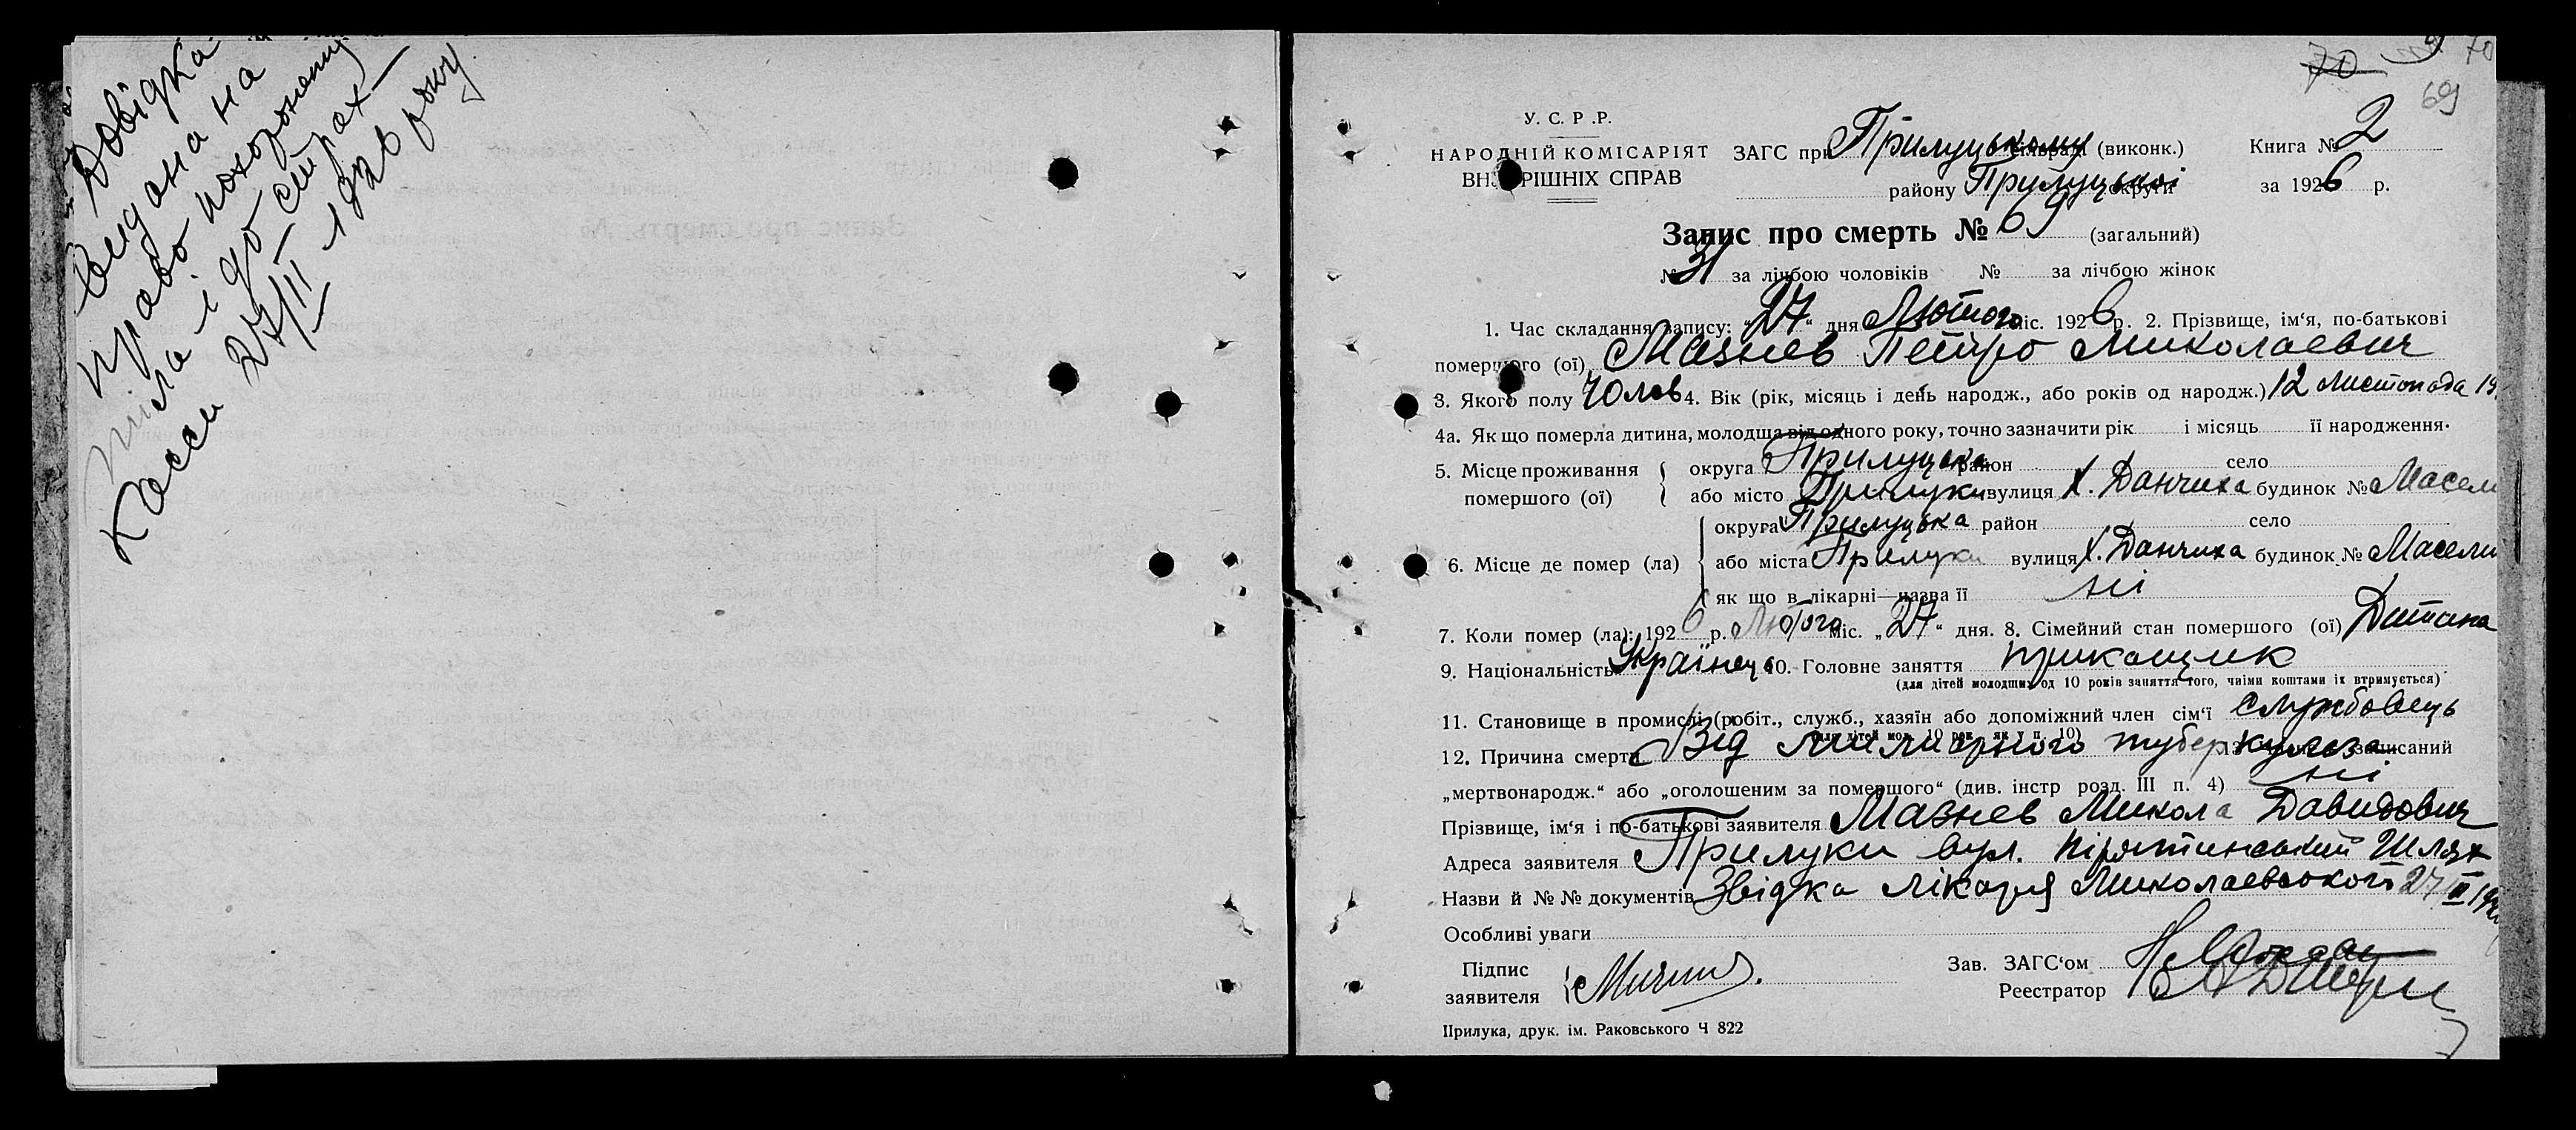 Довідка
видана на
право похорону
тіла і до страх
касси 27/II 1926 року
70 70
69
У. С. Р. Р.
НАРОДНІЙ КОМІСАРІЯТ ЗАГС при Прилуцькому (виконк.) Книга № 2
ВН РІШНІХ СПРАВ району Прилуцької округи за 1926 р.
Запис про смерть № 69 (загальний)
№ 31 за лічбою чоловіків № за лічбою жінок
1. Час складання запису: "27" дня Лютого міс. 1926 р. 2. Прізвище, ім'я, по-батькові
помершого (ої) Мазнев Петро Миколаевич
3. Якого полу Чолов 4. Вік (рік, місяць і день народж., або років од народж.) 12 листопада 19
4а. Як що померла дитина, молодша від одного року, точно зазначити рік і місяць її народження.
5. Місце проживання округа Прилуцька район село
помершого (ої) або місто Прилуки вулиця Х. Данчиха будинок № Масели
округа Прилуцька район село
6. Місце де помер (ла) або міста Прилуки вулиця Х. Данчиха будинок № Масели
як що в лікарні—назва її ні
7. Коли помер (ла): 1926 р. Лютого міс. „27" дня. 8. Сімейний стан помершого (ої) Дитина
9. Національність Українець 10. Головне заняття прикащик
(для дітей молодших од 10 років заняття того, чиїми коштами їх втримується)
11. Становище в промислі (робіт., служб., хазяїн або допоміжний член сім'ї службовець
(для дітей мол. 10 рок. як у п. 10)
12. Причина смерти Від милиарного туберкульоза записаний
„мертвонародж." або „оголошеним за помершого" (див. інстр розд. III п. 4) ні
Прізвище, ім'я і по-батькові заявителя Мазнев Микола Давидович
Адреса заявителя Прилуки вул. Пірятинський Шлях
Назви й № № документів Звідка лікаря Миколаевського 27/II 192
Особливі уваги
Підпис Зав. ЗАГС'ом
заявителя Реестратор
Прилука, друк. ім. Раковського Ч 822